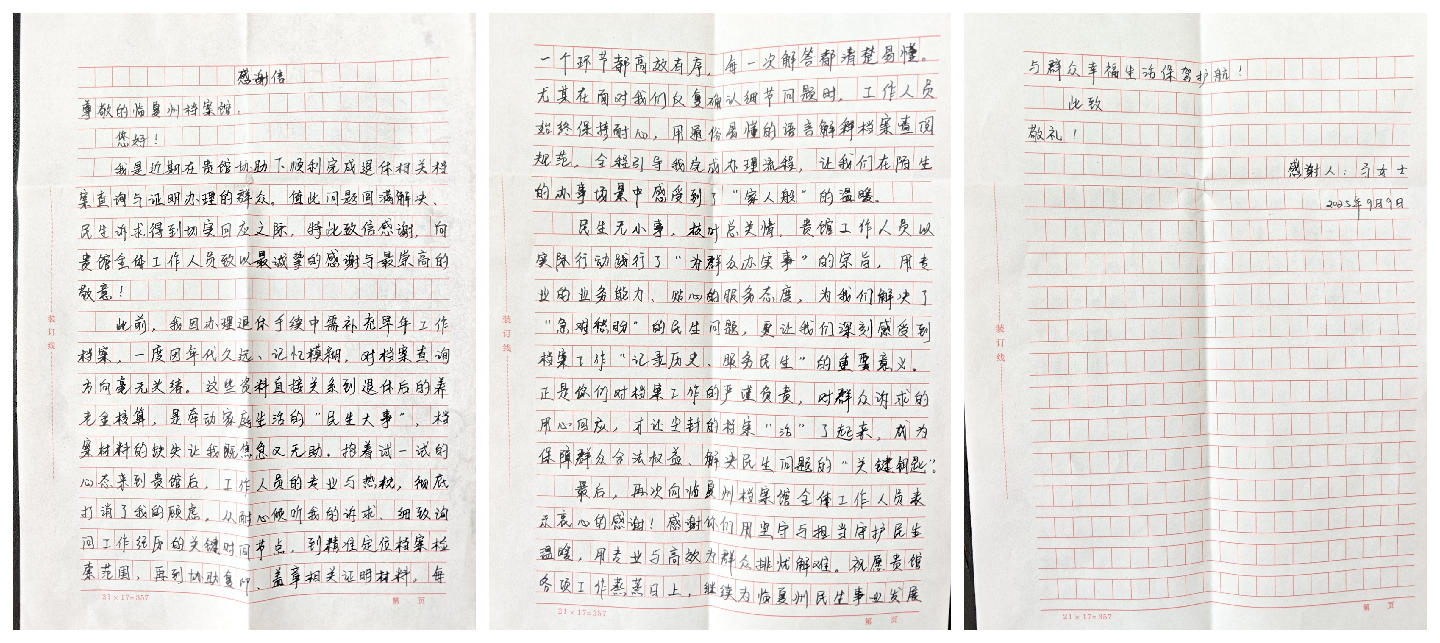 感谢信
尊敬的临夏州档案馆：
您好！
我是近期在贵馆协助下顺利完成退休相关档
案查询与证明办理的群众。值此问题圆满解决、
民生诉求得到切实回应之际，特此致信感谢，向
贵馆全体工作人员致以最诚挚的感谢与最崇高的
敬意！
此前，我因办理退休手续中需补充早年工作
档案，一度因年代久远、记忆模糊，对档案查询
方向毫无头绪。这些资料直接关系到退休后的养
老金核算，是牵动家庭生活的“民生大事”，档
案材料的缺失让我既焦急又无助。抱着试一试的
心态来到贵馆后，工作人员的专业与热忱，彻底
打消了我的顾虑。从耐心倾听我的诉求、细致询
问工作经历的关键时间节点，到精准定位档案检
索范围，再到协助复印、盖章相关证明材料，每
装订线
21×17=357
第 页
一个环节都高效有序，每一次解答都清楚易懂。
尤其在面对我们反复确认细节问题时，工作人员
始终保持耐心，用通俗易懂的语言解释档案查阅
规范，全程引导我完成办理流程，让我们在陌生
的办事场景中感受到了“家人般”的温暖。
民生无小事，枝叶总关情。贵馆工作人员以
实际行动践行了“为群众办实事”的宗旨，用专
业的业务能力、贴心的服务态度，为我们解决了
“急难愁盼”的民生问题，更让我们深刻感受到
档案工作“记录历史、服务民生”的重要意义。
正是你们对档案工作的严谨负责，对群众诉求的
用心回应，才让尘封的档案“活”了起来，成为
保障群众合法权益、解决民生问题的“关键钥匙”。
最后，再次向临夏州档案馆全体工作人员表
示衷心的感谢！感谢你们用坚守与担当守护民生
温暖，用专业与高效为群众排忧解难。祝愿贵馆
各项工作蒸蒸日上，继续为临夏州民生事业发展
装订线
21×17=357
第 页
与群众幸福生活保驾护航！
此致
敬礼！
感谢人：马女士
2025年9月9日
装订线
21×17=357
第 页